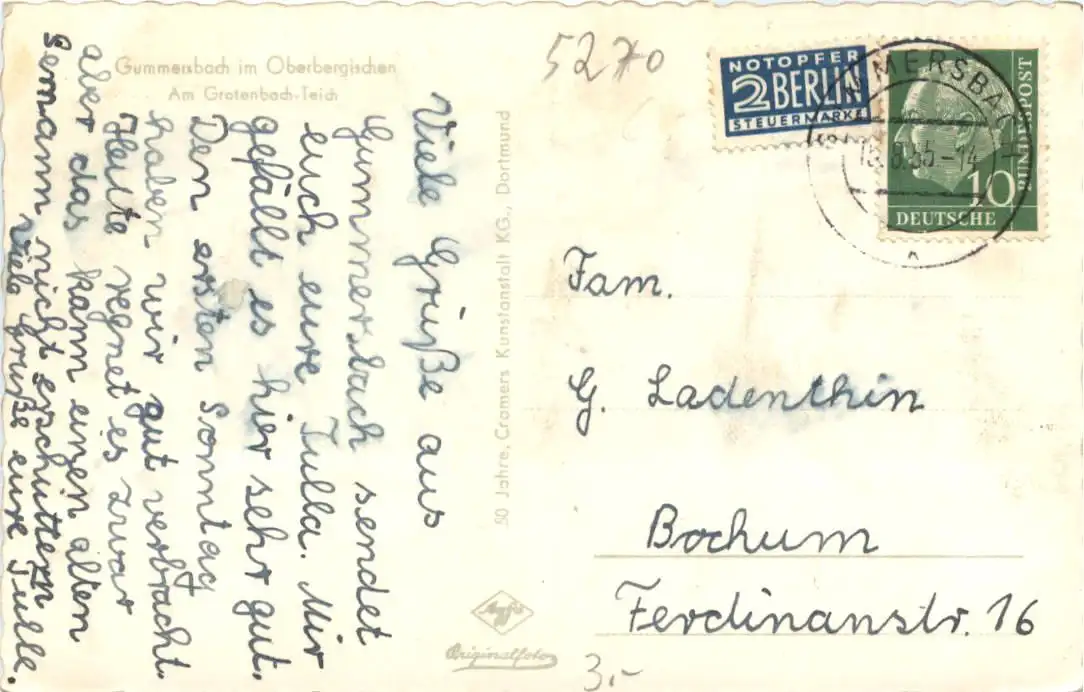 Gummersbach im Oberbergischen
Am Grotenbach-Teich
Viele Grüße aus
Gummersbach sendet
euch eure Tulla. Mir
gefällt es hier sehr gut.
Den ersten Sonntag
haben wir gut verbracht.
Heute regnet es zwar
aber das kann einen alten
Germann nicht erschüttern
viele Grüße eure Tulla.
50 Jahre, Cramers Kunstanstalt KG., Dortmund
Agfa
Originalfoto
5270
NOTOPFER
2 BERLIN
STEUERMARKE
MMERSBA
-14
10
DEUTSCHE
BUNDESPOST
Fam.
G. Ladenthin
Bochum
Ferdinanstr. 16
3.-